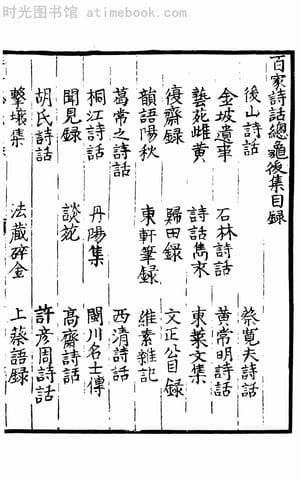 时光图书馆 - atimebook.com
百家詩話總龜後集目錄
後山詩話 蔡寬夫詩話
金坡遺事 石林詩話 黃常明詩話
藝苑雌黃 詩話雋永 東萊文集
復齋錄 歸田錄 文正公目錄
韻語陽秋 東軒筆錄 維素雜記
葛常之詩話 西清詩話
桐江詩話 丹陽集 閩川名士傳
聞見錄 談苑 高齋詩話
胡氏詩話 許彥周詩話
擊壤集 法藏碎金 上蔡語錄